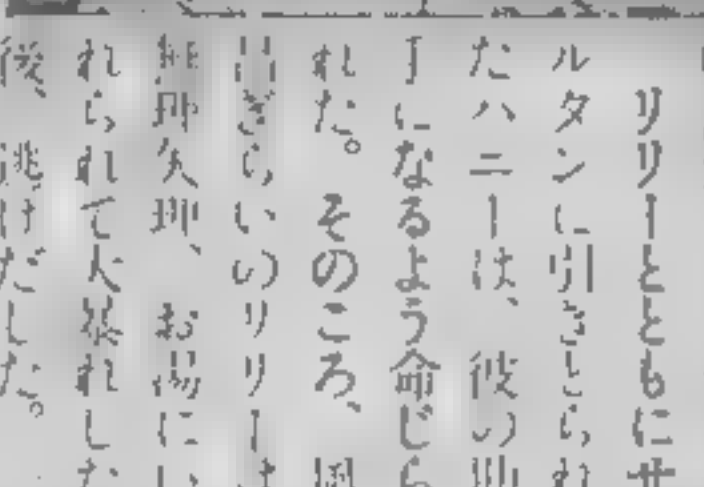 リリーとともにサ
ルタンに引きとられ
たハニーは、彼の
になるよう命じら
れた。そのころ、風
ぎらいのリリーは
無理矢理、お湯にい
れられて大暴れした
後、逃げだした。